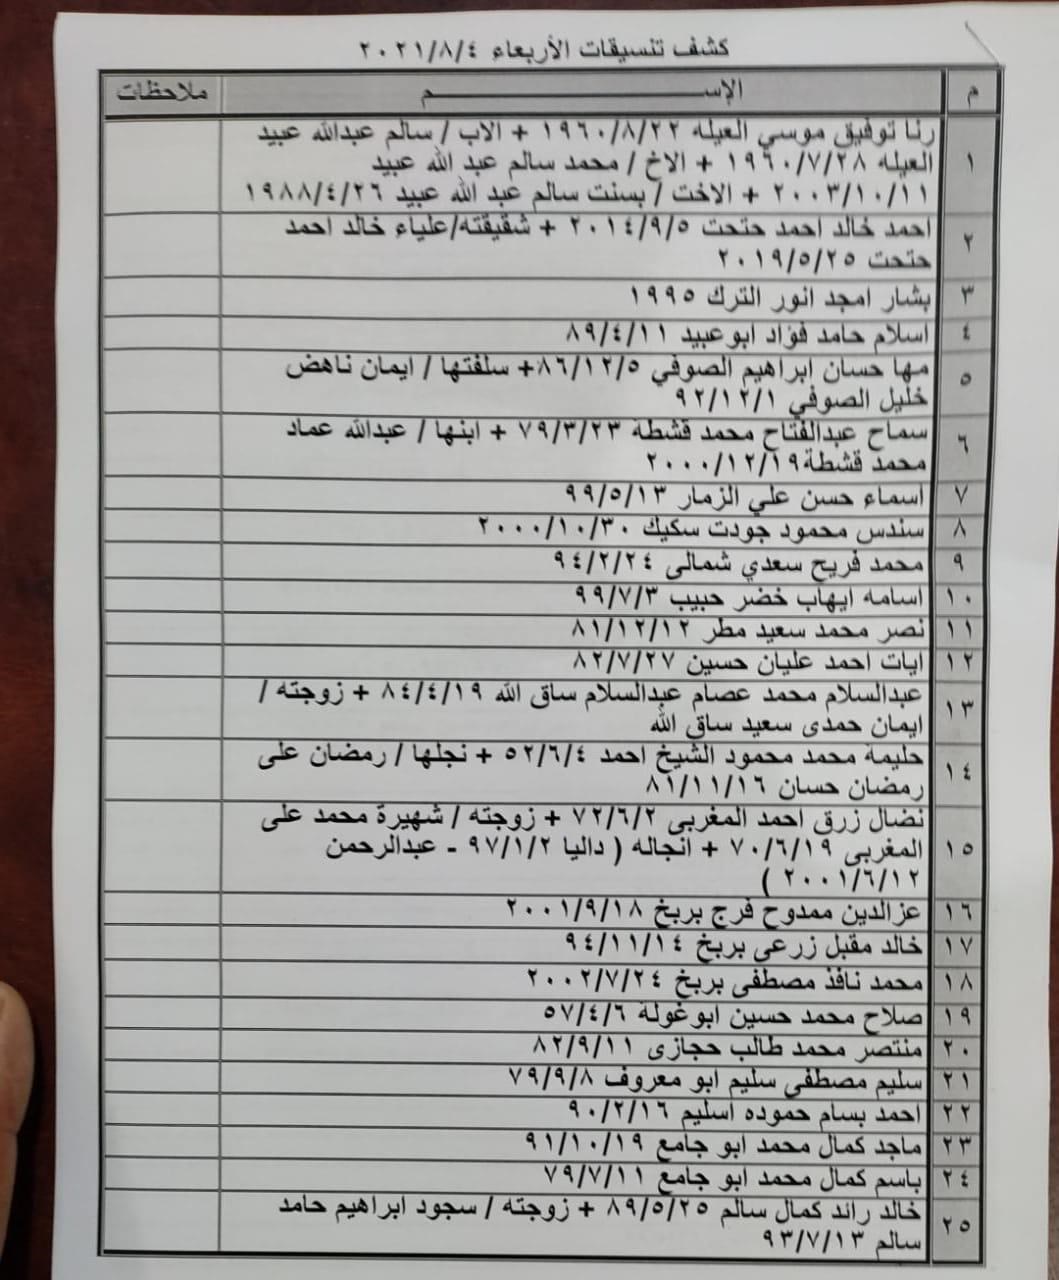 كشف تنسيقات الأربعاء ٢٠٢١/٨/٤
م الإســـــــــــــــم ملاحظات
١ رنا توفيق موسي العيله ١٩٦٠/٨/٢٢ + الاب / سالم عبدالله عبيد
العيله ١٩٦٠/٧/٢٨ + الاخ / محمد سالم عبد الله عبيد
٢٠٠٣/١٠/١١ + الاخت / بسنت سالم عبد الله عبيد ١٩٨٨/٤/٢٦
٢ احمد خالد احمد حتحت ٢٠١٤/٩/٥ + شقيقته/علياء خالد احمد
حتحت ٢٠١٩/٥/٢٥
٣ بشار امجد انور الترك ١٩٩٥
٤ اسلام حامد فؤاد ابوعبيد ٨٩/٤/١١
٥ مها حسان ابراهيم الصوفي ٨٦/١٢/٥+ سلفتها / ايمان ناهض
خليل الصوفي ٩٢/١٢/١
٦ سماح عبدالفتاح محمد قشطة ٧٩/٣/٢٣ + ابنها / عبدالله عماد
محمد قشطة٢٠٠٠/١٢/١٩
٧ اسماء حسن علي الزمار ٩٩/٥/١٣
٨ سندس محمود جودت سكيك ٢٠٠٠/١٠/٣٠
٩ محمد فريح سعدي شمالى ٩٤/٢/٢٤
١٠ اسامه ايهاب خضر حبيب ٩٩/٧/٣
١١ نصر محمد سعيد مطر ٨١/١٢/١٢
١٢ ايات احمد عليان حسين ٨٢/٧/٢٧
١٣ عبدالسلام محمد عصام عبدالسلام ساق الله ٨٤/٤/١٩ + زوجته /
ايمان حمدى سعيد ساق الله
١٤ حليمة محمد محمود الشيخ احمد ٥٢/٦/٤ + نجلها / رمضان على
رمضان حسان ٨١/١١/١٦
١٥ نضال زرق احمد المغربى ٧٢/٦/٢ + زوجته / شهيرة محمد على
المغربى ٧٠/٦/١٩ + انجاله ( داليا ٩٧/١/٢ - عبدالرحمن
٢٠٠١/٦/١٢ )
١٦ عزالدين ممدوح فرج بربخ ٢٠٠١/٩/١٨
١٧ خالد مقبل زرعى بربخ ٩٤/١١/١٤
١٨ محمد نافذ مصطفى بربخ ٢٠٠٢/٧/٢٤
١٩ صلاح محمد حسين ابوغولة ٥٧/٤/٦
٢٠ منتصر محمد طالب حجازى ٨٢/٩/١١
٢١ سليم مصطفى سليم ابو معروف ٧٩/٩/٨
٢٢ احمد بسام حموده اسليم ٩٠/٢/١٦
٢٣ ماجد كمال محمد ابو جامع ٩١/١٠/١٩
٢٤ باسم كمال محمد ابو جامع ٧٩/٧/١١
٢٥ خالد رائد كمال سالم ٨٩/٥/٢٥ + زوجته / سجود ابراهيم حامد
سالم ٩٣/٧/١٣